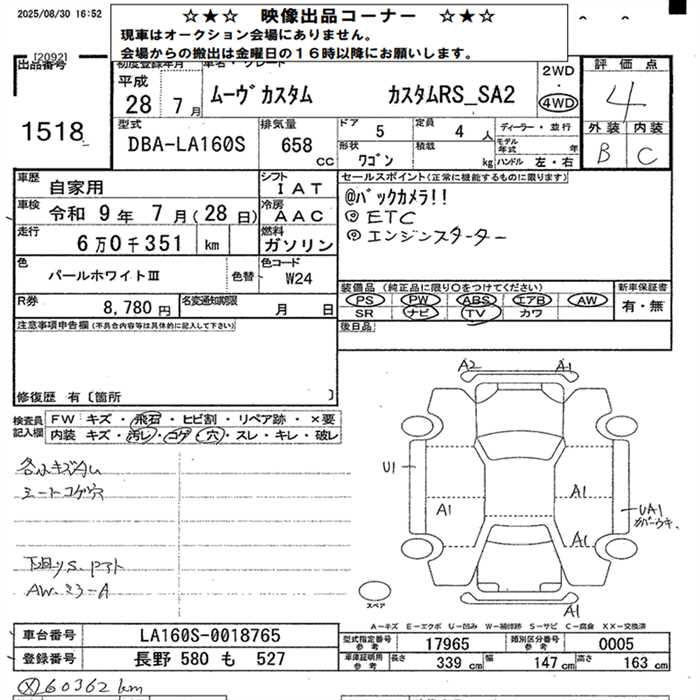 2025/08/30 16:52
☆★☆ 映像出品コーナー ☆★☆
現車はオークション会場にありません。
会場からの搬出は金曜日の16時以降にお願いします。
[2092]
出品番号
1518
初度登録年月
平成
28 7月
車名・グレード
ムーヴカスタム カスタムRS_SA2
2WD
4WD
評価点
4
外装 内装
B C
型式
DBA-LA160S
排気量
658 CC
ドア 5
定員 4 人
形状 ワゴン
積載 kg
ディーラー・並行
モデル年式 年
ハンドル 左・右
車歴 自家用
シフト IAT
車検 令和 9年 7月(28日)
冷房 AAC
走行 6万0千351 km
燃料 ガソリン
色 パールホワイトIII
色替
色コード W24
R券 8,780円
名変通知期限 月 日
セールスポイント(正常に機能するものに限ります)
@バックカメラ!!
@ ETC
@ エンジンスターター
装備品 (純正品に限り〇をつけてください)
PS PW ABS エアB AW
SR ナビ TV カワ
新車保証書
有・無
後日品
注意事項申告欄(不具合内容等は具体的に記入して下さい)
修復歴 有〔箇所 〕
検査員記入欄
FW キズ・飛石・ヒビ割・リペア跡・×要
内装 キズ・汚レ・コゲ・穴・スレ・キレ・破レ
シートコゲ穴
AW
A2 A1
U1
A1
A1
UA1
A1
A1
スペア
A-キズ E-エクボ U-凹み W-補修跡 S-サビ C-腐食 XX-交換済
車台番号 LA160S-0018765
登録番号 長野 580 も 527
型式指定番号参考 17965
類別区分番号参考 0005
車庫証明用参考 長さ 339 cm 幅 147 cm 高さ 163 cm
60362 km